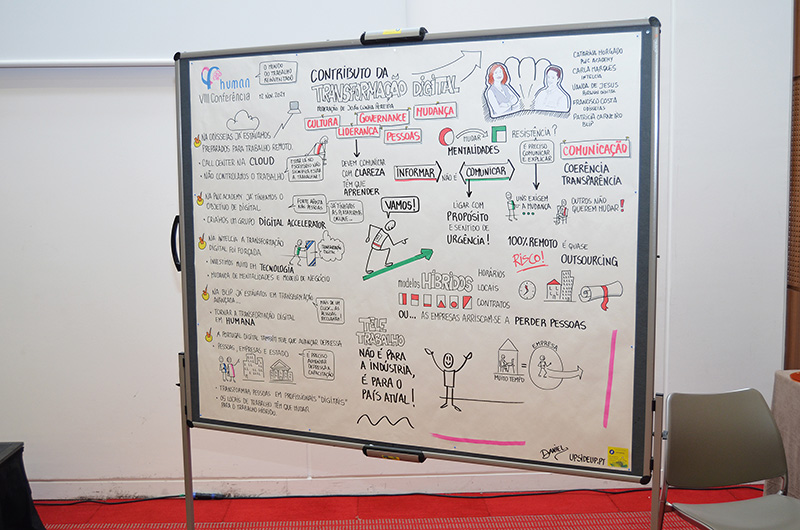 human
VIII Conferência
O MUNDO
DO TRABALHO
REINVENTADO
12 NOV. 2021
CONTRIBUTO DA
TRANSFORMAÇÃO DIGITAL
MODERAÇÃO DE
CULTURA
GOVERNANCE
MUDANÇA
LIDERANÇA
PESSOAS
CATARINA MORGADO
PHC ACADEMY
CARLA MARQUES
INTELCIA
VANDA DE JESUS
PORTUGAL DIGITAL
FRANCISCO COSTA
ODISSEIAS
PATRÍCIA CARNEIRO
BLIP
NA ODISSEIAS JÁ ESTÁVAMOS
PREPARADOS PARA TRABALHO REMOTO.
• CALL CENTER NA CLOUD
• NÃO CONTROLAMOS O TRABALHO
NA PHC ACADEMY JÁ TÍNHAMOS O
OBJETIVO DE DIGITAL.
• CRIÁMOS UM GRUPO DIGITAL ACCELERATOR
FORTE APOSTA
NAS PESSOAS
JÁ TÍNHAMOS
AS PLATAFORMAS
ONLINE...
NA INTELCIA A TRANSFORMAÇÃO
DIGITAL FOI FORÇADA.
• INVESTIMOS MUITO EM TECNOLOGIA
• MUDANÇA DE MENTALIDADES E MODELO DE NEGÓCIO
TRANSFORMAÇÃO
DIGITAL
NA BLIP JÁ ESTÁVAMOS EM TRANSFORMAÇÃO
AVANÇADA...
• TORNAR A TRANSFORMAÇÃO DIGITAL
EM HUMANA
A PORTUGAL DIGITAL TAMBÉM TEVE QUE AVANÇAR DEPRESSA
• PESSOAS, EMPRESAS E ESTADO
É PRECISO
AUMENTAR
DEPRESSA A
CAPACITAÇÃO
• TRANSFORMAR PESSOAS EM PROFISSIONAIS "DIGITAIS"
• OS LOCAIS DE TRABALHO TÊM QUE MUDAR
PARA O TRABALHO HÍBRIDO.
DEVEM COMUNICAR
COM CLAREZA
TÊM QUE
APRENDER
VAMOS!
MUDAR
MENTALIDADES
RESISTÊNCIA?
É PRECISO
COMUNICAR
E EXPLICAR
COMUNICAÇÃO
COERÊNCIA
TRANSPARÊNCIA
INFORMAR
NÃO É
COMUNICAR
LIGAR COM
PROPÓSITO
E SENTIDO DE
URGÊNCIA!
UNS EXIGEM
A MUDANÇA
OUTROS NÃO
QUEREM MUDAR!
100% REMOTO É QUASE
RISCO!
OUTSOURCING
modelos HÍBRIDOS
HORÁRIOS
LOCAIS
CONTRATOS
OU... AS EMPRESAS ARRISCAM-SE A PERDER PESSOAS
TELE
TRABALHO
NÃO É PARA
A INDÚSTRIA,
É PARA O
PAÍS ATUAL!
MUITO TEMPO
=
EMPRESA
DANIEL
UPSIDEUP.PT